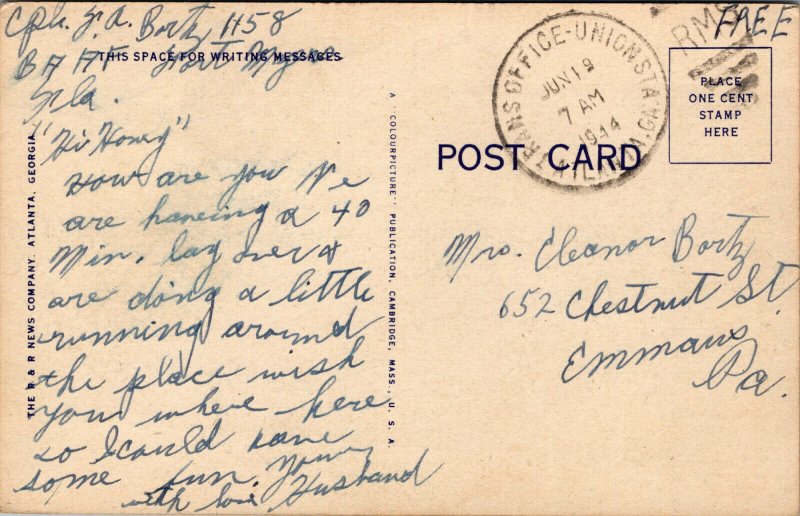 Cpl. F. A. Bortz 1158
BAAF Fort Myers
Fla.
THIS SPACE FOR WRITING MESSAGES
"Hi Honey"
How are you We
are haveing a 40
Min. lay over &
are doing a little
running around
the place wish
you where here
so I could have
some fun. Your
with love Husband
THE R & R NEWS COMPANY, ATLANTA, GEORGIA
A "COLOURPICTURE" PUBLICATION, CAMBRIDGE, MASS., U. S. A.
TRANS OFFICE-UNION STA.
ATLANTA, GA.
JUN 19
7 AM
1944
RMS
FREE
PLACE
ONE CENT
STAMP
HERE
POST CARD
Mrs. Eleanor Bortz
652 Chestnut St.
Emmaus
Pa.